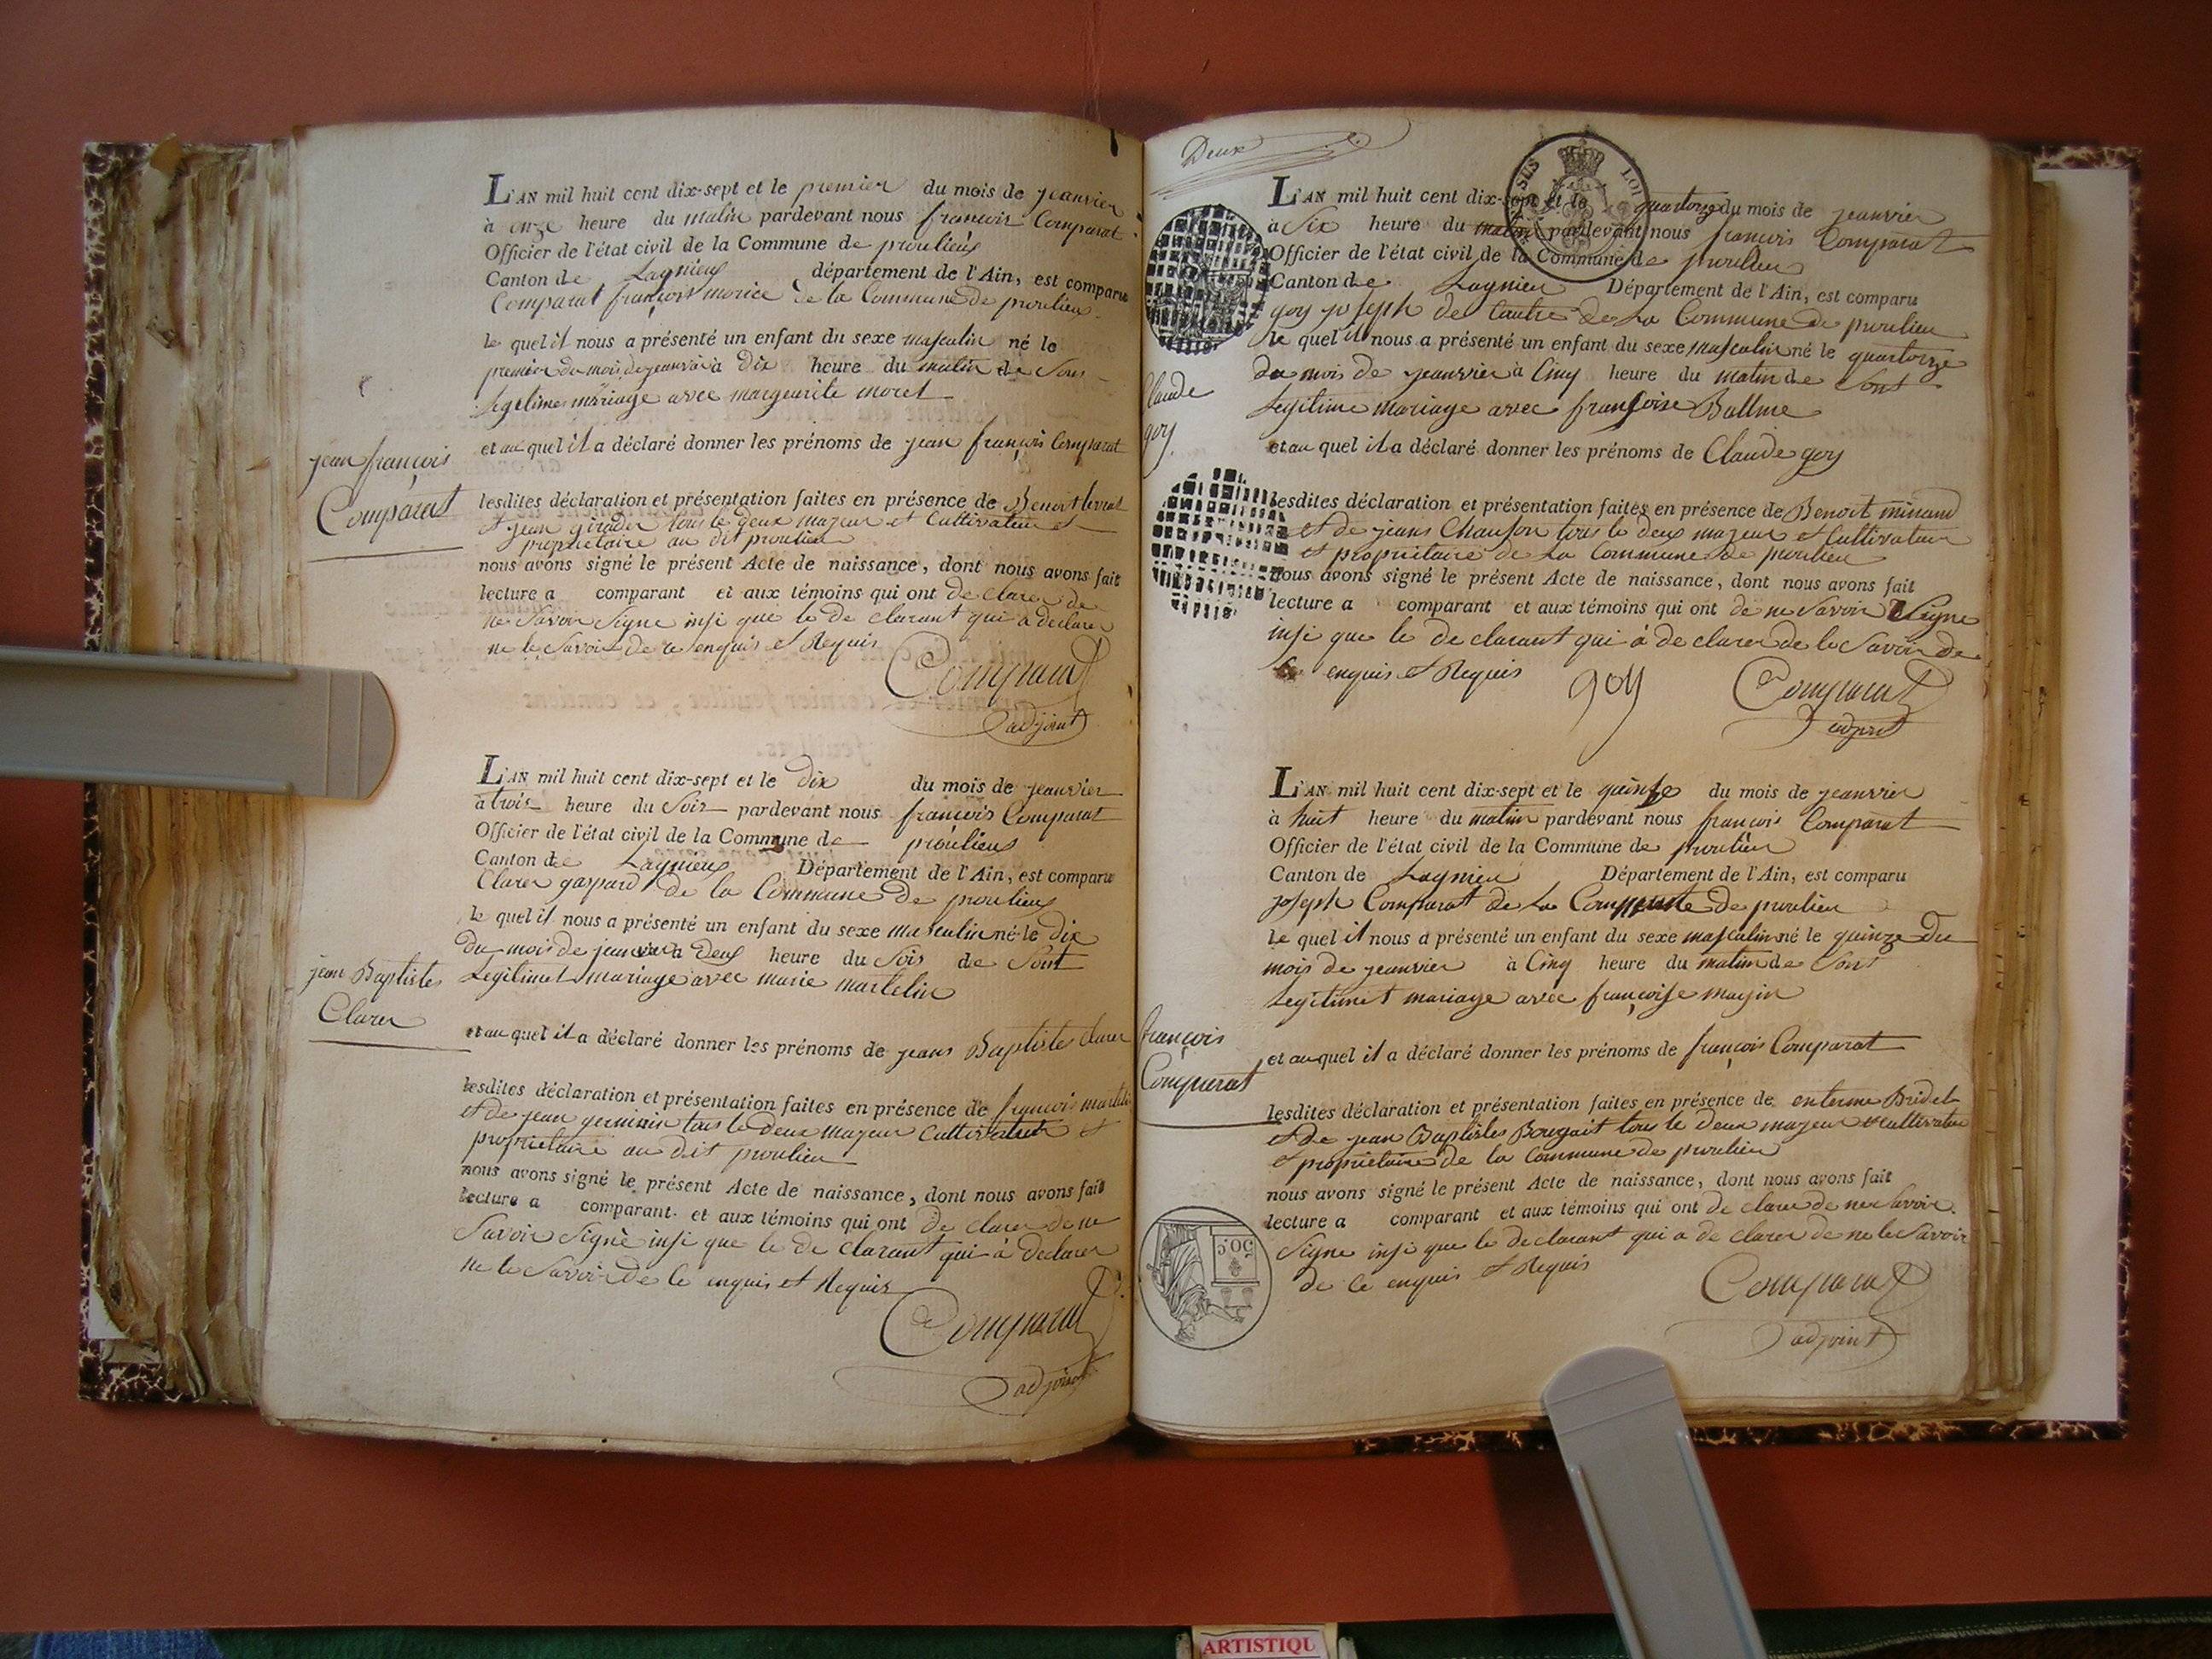 L'AN mil huit cent dix-sept et le premier du mois de jeanvier
à onze heure du matin pardevant nous françois Comparat
Officier de l'état civil de la Commune de proulieus
Canton de Lagnieus département de l'Ain, est comparu
Comparat françois morice de la Commune de proulieu
le quel il nous a présenté un enfant du sexe masculin né le
premier du mois de jeanvier à Dix heure du matin de Sons
Legitimes mariage avec marguerite moret
jean françois
Comparat
et au quel il a déclaré donner les prénoms de jean françois Comparat
lesdites déclaration et présentation faites en présence de Benoit
et jean tous le deux majeur et Cultivateur et
proprietaire au dit proulieu
nous avons signé le présent Acte de naissance, dont nous avons fait
lecture a comparant et aux témoins qui ont de clarer de
ne Savoir Signe insi que le de clarant qui a declarer
ne le Savoir de ce enquis et Requis
Comparat
adjoint
L'AN mil huit cent dix-sept et le dix du mois de jeanvier
à trois heure du Soir pardevant nous françois Comparat
Officier de l'état civil de la Commune de proulieus
Canton de Lagnieus Département de l'Ain, est comparu
Clarer gaspard de la Commune de proulieus
le quel il nous a présenté un enfant du sexe masculin né le dix
du mois de jeanvier à deus heure du Soir de Sont
Legitimet mariage avec marie martelin
jean Baptistes
Clarer
et au quel il a déclaré donner les prénoms de jeans Baptiste Clarer
lesdites déclaration et présentation faites en présence de françois
et de jean tous le deux majeur Cultivateur et
proprietaire au dit proulieu
nous avons signé le présent Acte de naissance, dont nous avons fait
lecture a comparant et aux témoins qui ont de clarer de ne
Savoir Signè insi que le de clarant qui à declarer
ne le Savoir de ce enquis et Requis
Comparat
adjoint
Deux
L'AN mil huit cent dix-sept et le quartorze du mois de jeanvier
à Six heure du matin pardevant nous françois Comparat
Officier de l'état civil de la Commune de proulieu
Canton de Lagnieu Département de l'Ain, est comparu
goy joseph de de La Commune de proulieu
le quel il nous a présenté un enfant du sexe masculin né le quartorze
du mois de jeanvier à Cinq heure du matin de Sont
Legitime mariage avec françoise Ballme
Claude
goy
et au quel il a déclaré donner les prénoms de Claude goy
lesdites déclaration et présentation faites en présence de Benoit minand
et de jeans Chanson tous le deux majeur et Cultivateur
et proprietaire de La Commune de proulieu
nous avons signé le présent Acte de naissance, dont nous avons fait
lecture a comparant et aux témoins qui ont de ne Savoir Signe
insi que le de clarant qui à de clarer de le Savoir de
enquis et Requis
goy
Comparat
adjoint
L'AN mil huit cent dix-sept et le quinse du mois de jeanvier
à huit heure du matin pardevant nous françois Comparat
Officier de l'état civil de la Commune de proulieu
Canton de Lagnieu Département de l'Ain, est comparu
joseph Comparat de La de proulieu
le quel il nous a présenté un enfant du sexe masculin né le quinze du
mois de jeanvier à Cinq heure du matin de Sont
Legitimet mariage avec françoise
françois
Comparat
et au quel il a déclaré donner les prénoms de françois Comparat
lesdites déclaration et présentation faites en présence de Bridet
et de jean Baptistes tous le deux majeur et cultivateur
et proprietaire de la Commune de proulieu
nous avons signé le présent Acte de naissance, dont nous avons fait
lecture a comparant et aux témoins qui ont de clarer de ne Savoir
Signe insi que le declarant qui a de clarer de ne le Savoir
de ce enquis et Requis
50 C.
Comparat
adjoint
ARTISTIQU